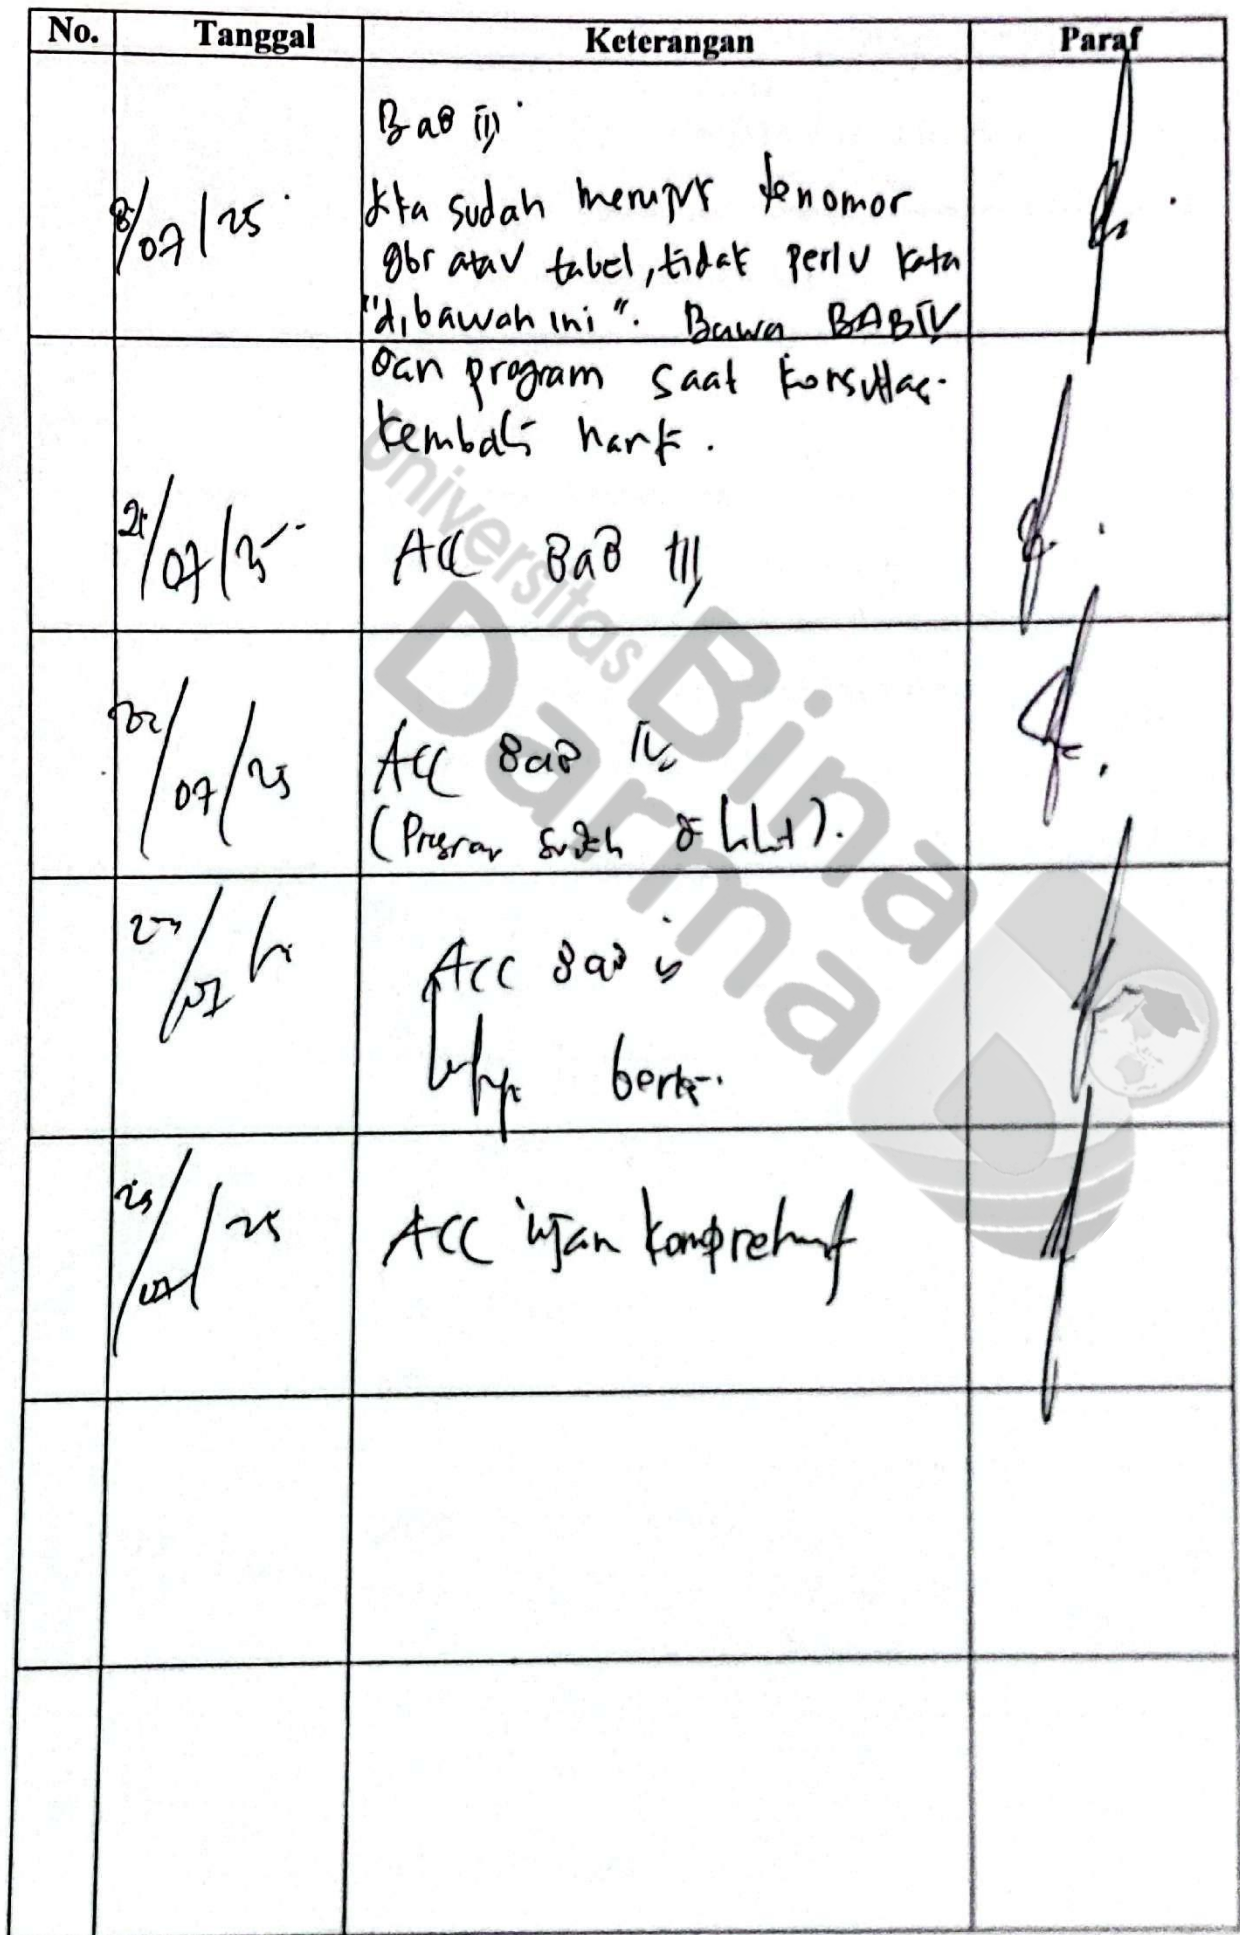 No. Tanggal Keterangan Paraf
Bab III
8/07/25
jika sudah merujuk ke nomor
gbr atau tabel, tidak perlu kata
"dibawah ini". Bawa BAB IV
dan program saat konsultasi
kembali
21/07/25 ACC BaB III
22/07/25 ACC BaB IV
(Program sudah
07
ACC BaB
berkas
07/25 ACC ujian komprehensif
Universitas
Bina
Darma